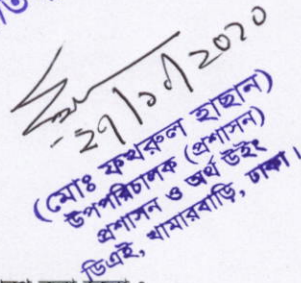 ২৭/১০/২০২০
(মোঃ ফখরুল হাছান)
উপপরিচালক (প্রশাসন)
প্রশাসন ও অর্থ উইং
ডিএই, খামারবাড়ি, ঢাকা।